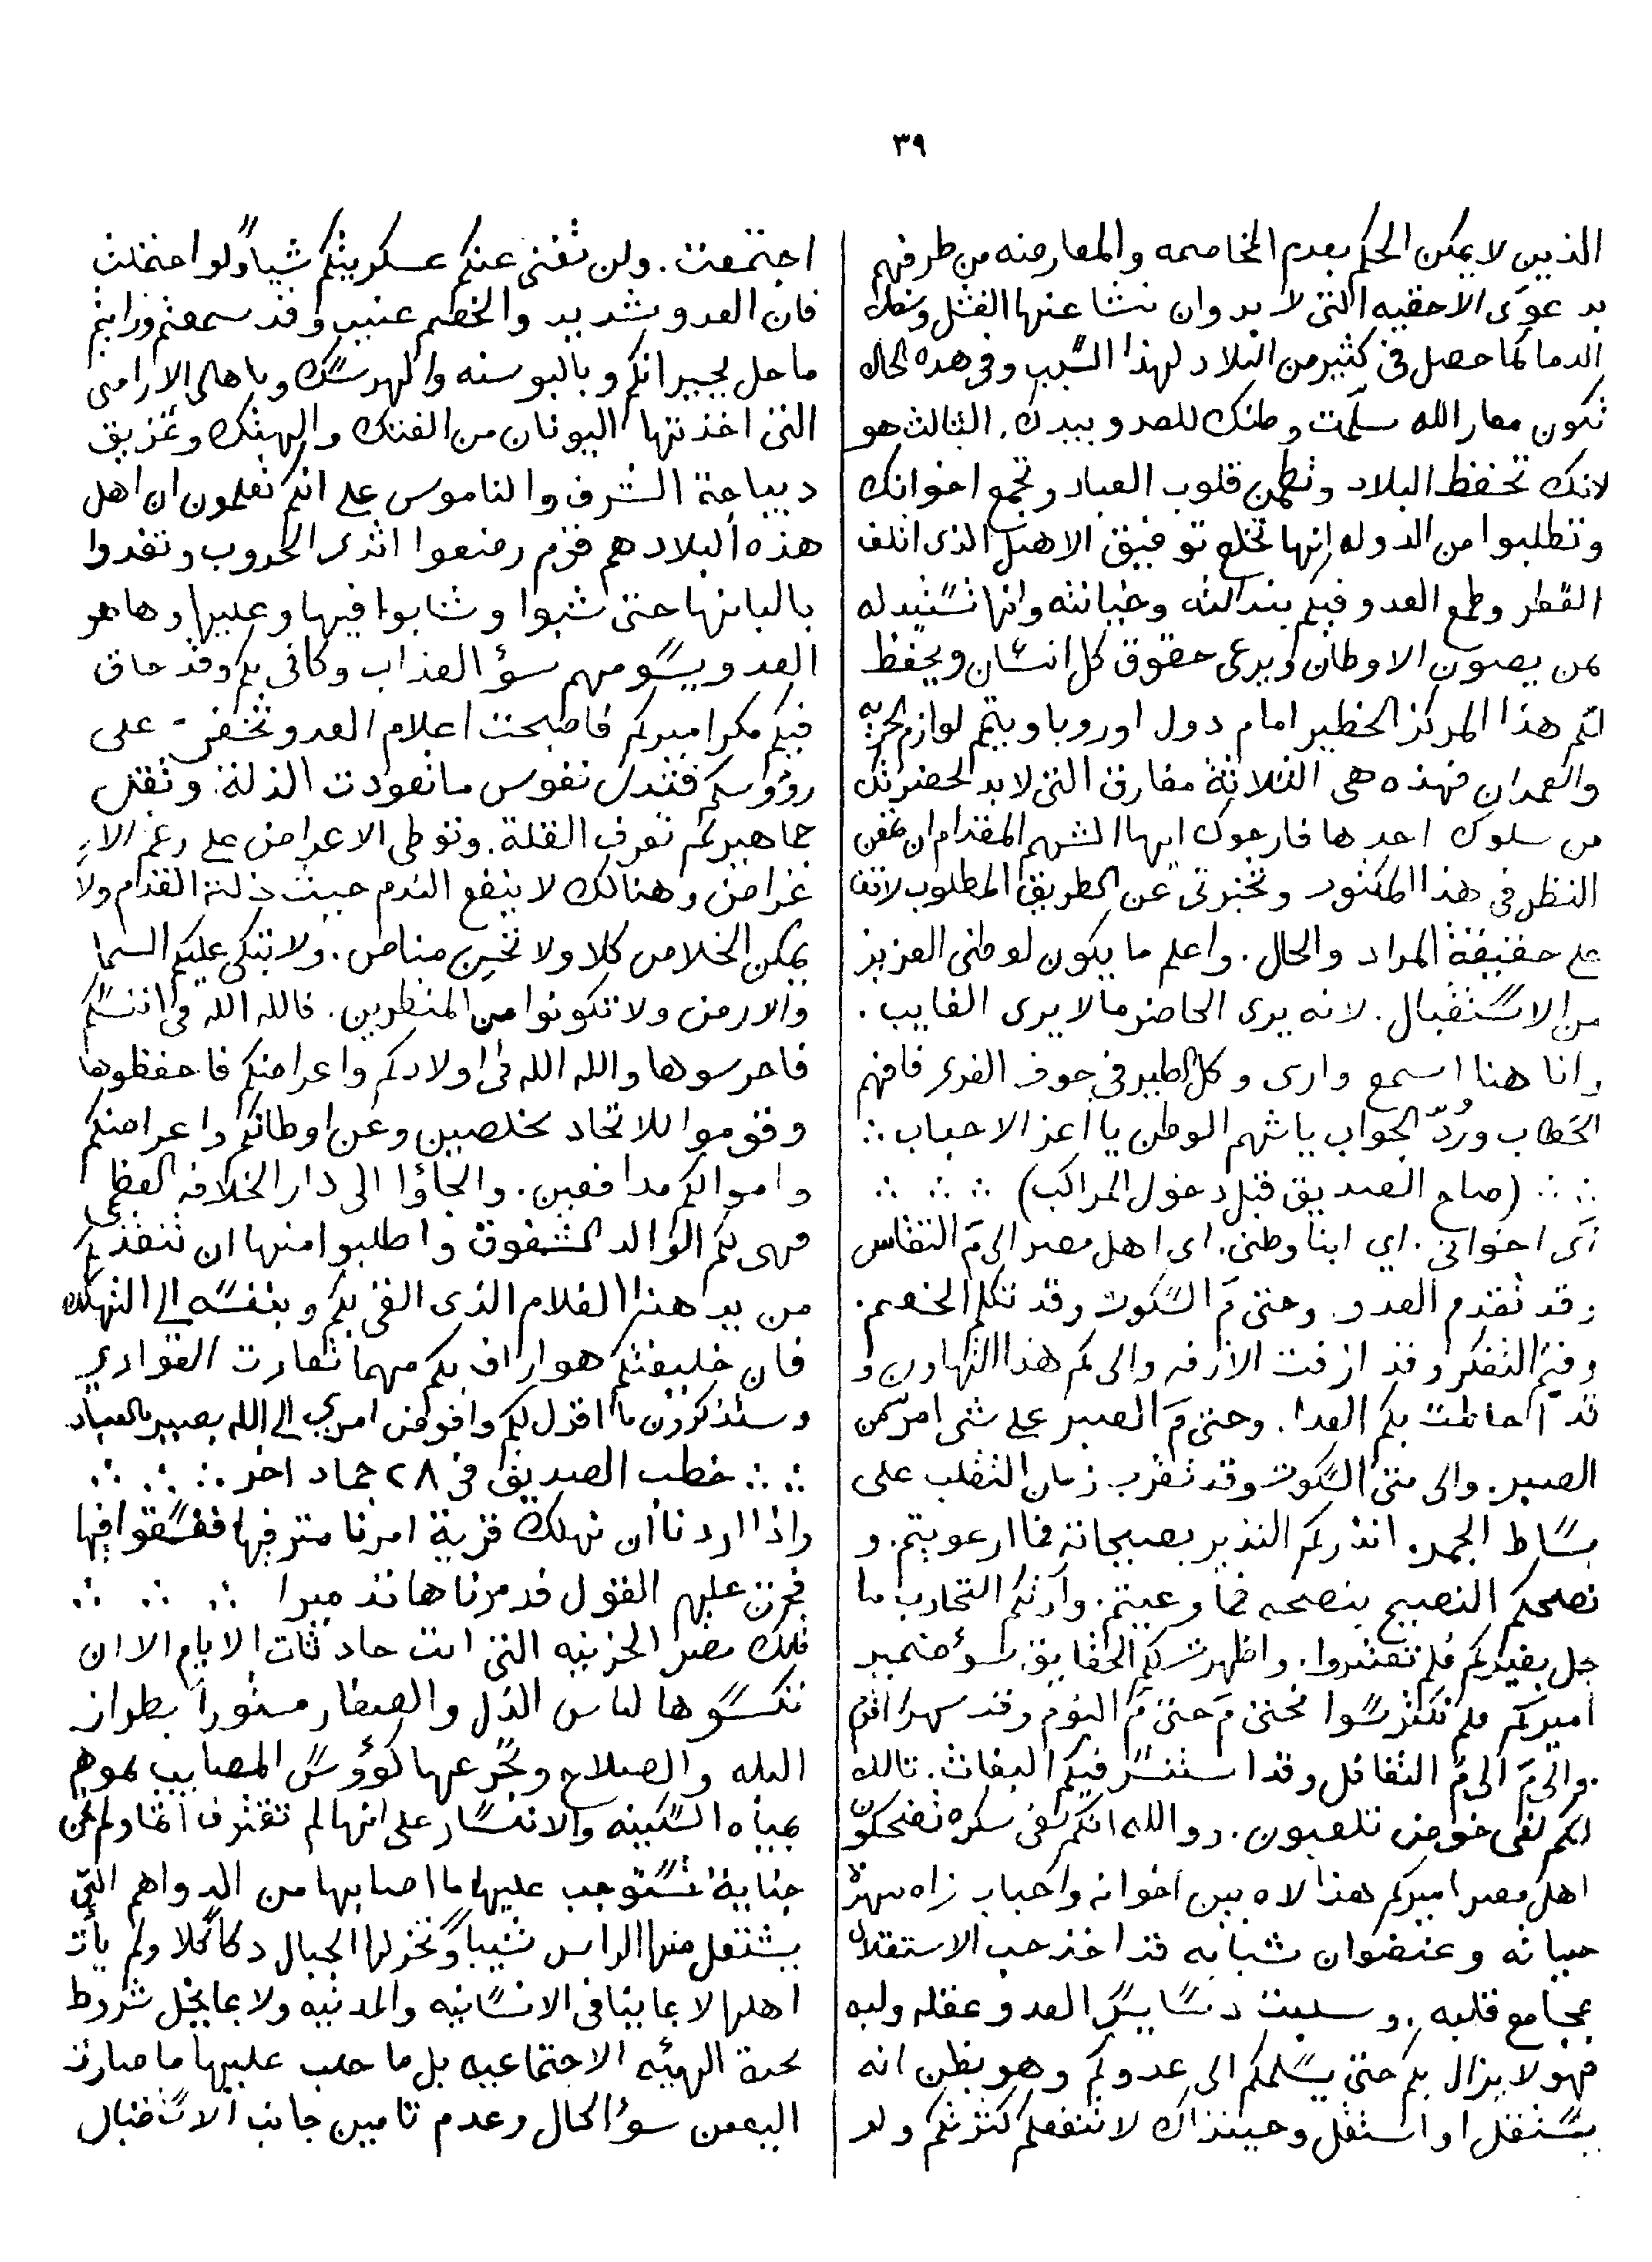 ٣٩
الذين لا يمكن الحكم بعدم المخاصمه والمعارضه من طرفهم
بدعوى الاحقيه التى لا بد وان تنشا عنها الفتل وسفك
الدما كما حصل فى كثير من البلاد لهذا السبب وفى هذه الحال
تكون معاذ الله سلمت وطنك للعدو بيدك. الثالث هو
لانك تحفظ البلاد وتطمن قلوب العباد وتجمع اخوانك
وتطلبوا من الدوله انها تخلع توفيق الاهبل الذى اتلف
القطر وطمع العدو فيكم بندالته وخيانته وانها تستبدله
بمن يصون الاوطان ويرعى حقوق كل انسان ويحفظ
لكم هذا المركز الخطير امام دول اوروبا ويتم لوازم الحريه
والعمدان فهذه هى الثلاثة مفارق التى لابد لحضرتك
من سلوك احدها فارجوك ايها الشهم المقدام ان تمعن
النظر فى هذا المكتوب وتخبرنى عن الطريق المطلوب لاقف
على حقيقة المراد والحال. واعلم ما يكون لوطنى العزيز
من الاستقبال. لانه يرى الحاضر مالا يرى الغايب.
وانا هنا اسمع وارى وكل الطير فى جوف الفرى فافهم
الخطاب ورُدّ الجواب ياشهم الوطن يا اعز الاحباب
(صاح الصديق قبل دخول المراكب)
اى اخوانى. اي ابنا وطنى. اى اهل مصر الى مَ التقاعس
وقد تقدم العدو. وحتى مَ السكوت وقد تكلم الخصم.
وفيم التفكر وقد ازفت الازفه والى كم هذا التهاون و
قد احاطت بكم العدا. وحتى مَ الصبر على شى امرّ من
الصبر. والى متى السكوت وقد تقرب زمان التقلب على
بساط الجمر. انذركم النذير بصيحاته فما ارعويتم. و
نصحكم النصيح بنصحه فما وعيتم. وأرتكم التجارب ما
حل بغيركم فلم تعتبروا. واظهرت لكم الحقايق سوء ضمير
اميركم فلم تكترسوا فحتى مَ حتى مَ النوم وقد سهرالقوم
والى مَ الى مَ التغافل وقد استنسر فيكم البغاث. تالله
انكم لفى خوض تلعبون. و والله انكم لفى سكره تضحكون
اهل مصر اميركم هذا لاه بين اخوانه واحباب زاه بزهرة
حياته وعنفوان شبابه قد اخذ حب الاستقلال
بمجامع قلبه. وسلبت دسايس العدو عقله ولبه
فهو لا يزال بكم حتى يسلمكم الى عدوكم وهو يظن انه
يستقل او استقل وحينذاك لا تنفعكم كثرتكم ولو
اجتمعت. ولن تغنى عنكم عسكريتكم شياً ولو احتفلت
فان العدو شديد والخصم عنيد وقد سمعتم ورايتم
ماحل بجيرانكم وبالبوسنه والهرسك وباهالى الاراضى
التى اخذتها اليونان من الفتك والهتك وتمزيق
ديباجة الشرف والناموس على انكم تعلمون ان اهل
هذه البلاد هم قوم رضعوا اثدى الحروب وتغدوا
بالبانها حتى شبوا وشابوا فيها وعليها وهاهو
العدو يسومهم سؤ العذاب وكانى بكم وقد حاق
فيكم مكر اميركم فاصبحت اعلام العدو تخفق - على
رؤوسكم فتذل نفوس ما تعودت الذلة. وتقل
جماهير لم تعرف القلة. وتوطى الاعراض على رغم الا
غراض وهنالك لا ينفع الندم حيث ذلت القدام ولا
يمكن الخلاص كلا ولا تحين مناص. ولا تبكى عليكم السما
والارض ولا تكونوا من المنظرين. فالله الله فى انفسكم
فاحرسوها والله الله فى اولادكم واعراضكم فاحفظوها
وقوموا للاتحاد مخلصين وعن اوطانكم واعراضكم
واموالكم مدافعين. والجاؤا الى دار الخلافه العظمى
فهى لكم الوالد الشفوق واطلبوا منها ان تنقذكم
من يد هذا الغلام الذى القى بكم وبنفسه الى التهلكه
فان خليفتكم هو اراف بكم مهما تعادت العوادى
وستذكرون ما اقول لكم وافوض امرى الى الله بصير بالعباد
خطب الصديق فى ٢٨ جماد اخر
واذا اردنا أن نهلك قرية امرنا مترفيها ففسقوا فيها
فحق عليهم القول فدمرناها تدميرا
تلك مصر الحزينه التى ابت حادثات الايام الا ان
تكسوها لباس الذل والصغار مسثوراً بطراز
البله والصلاح وتجرعها كؤوس المصايب بموهم
بمياه السكينه والانتسار على انها لم تقترف اثما ولم تجن
جناية تستوجب عليها ما اصابها من الدواهم التى
يشتعل منها الراس شيباً وتخر لها الجبال دكاً كلا ولم يأت
اهلها لا بما ينافى الانسانيه والمدنيه ولا بما يخل شروط
صحة الهيئه الاجتماعيه بل ما جلب عليها ما صارت
اليه من سؤ الحال وعدم تامين جانب الاستقبال